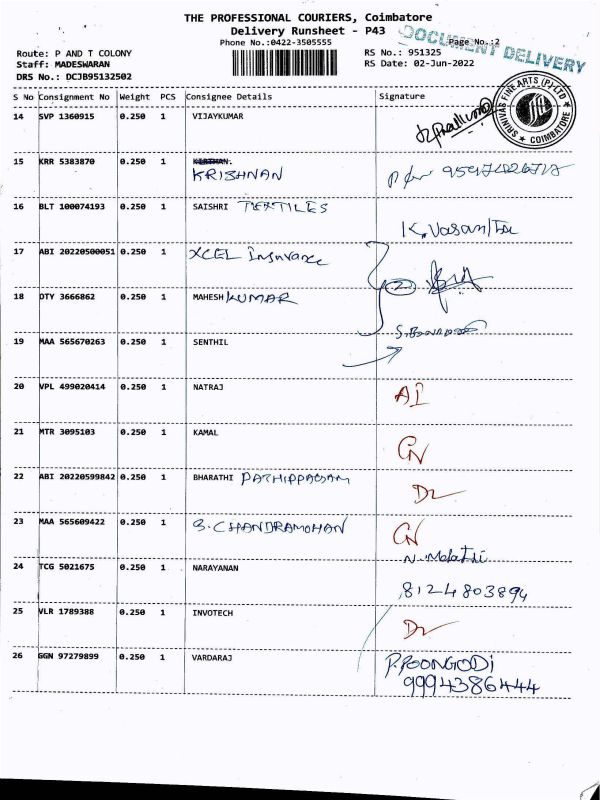 THE PROFESSIONAL COURIERS, Coimbatore
Delivery Runsheet - P43
Phone No.:0422-3505555
DOCUMENT DELIVERY
Page No.:2
Route: P AND T COLONY
RS No.: 951325
Staff: MADESWARAN
RS Date: 02-Jun-2022
DRS No.: DCJB95132502
S No Consignment No Weight PCS Consignee Details Signature
14 SVP 1360915 0.250 1 VIJAYKUMAR
SRINIVAS FINE ARTS (P) LTD COIMBATORE
15 KRR 5383870 0.250 1
KRISHNAN
16 BLT 100074193 0.250 1 SAISHRI TEXTILES
K. Vasantha
17 ABI 20220500051 0.250 1 XCEL Insurance
2
18 DTY 3666862 0.250 1 MAHESH KUMAR
19 MAA 565670263 0.250 1 SENTHIL
20 VPL 499020414 0.250 1 NATRAJ
21 MTR 3095103 0.250 1 KAMAL
22 ABI 20220599842 0.250 1 BHARATHI
23 MAA 565609422 0.250 1 S. CHANDRAMOHAN
N. Malathi
24 TCG 5021675 0.250 1 NARAYANAN
8124803894
25 VLR 1789388 0.250 1 INVOTECH
26 GGN 97279899 0.250 1 VARDARAJ P. POONGODi
9994386444